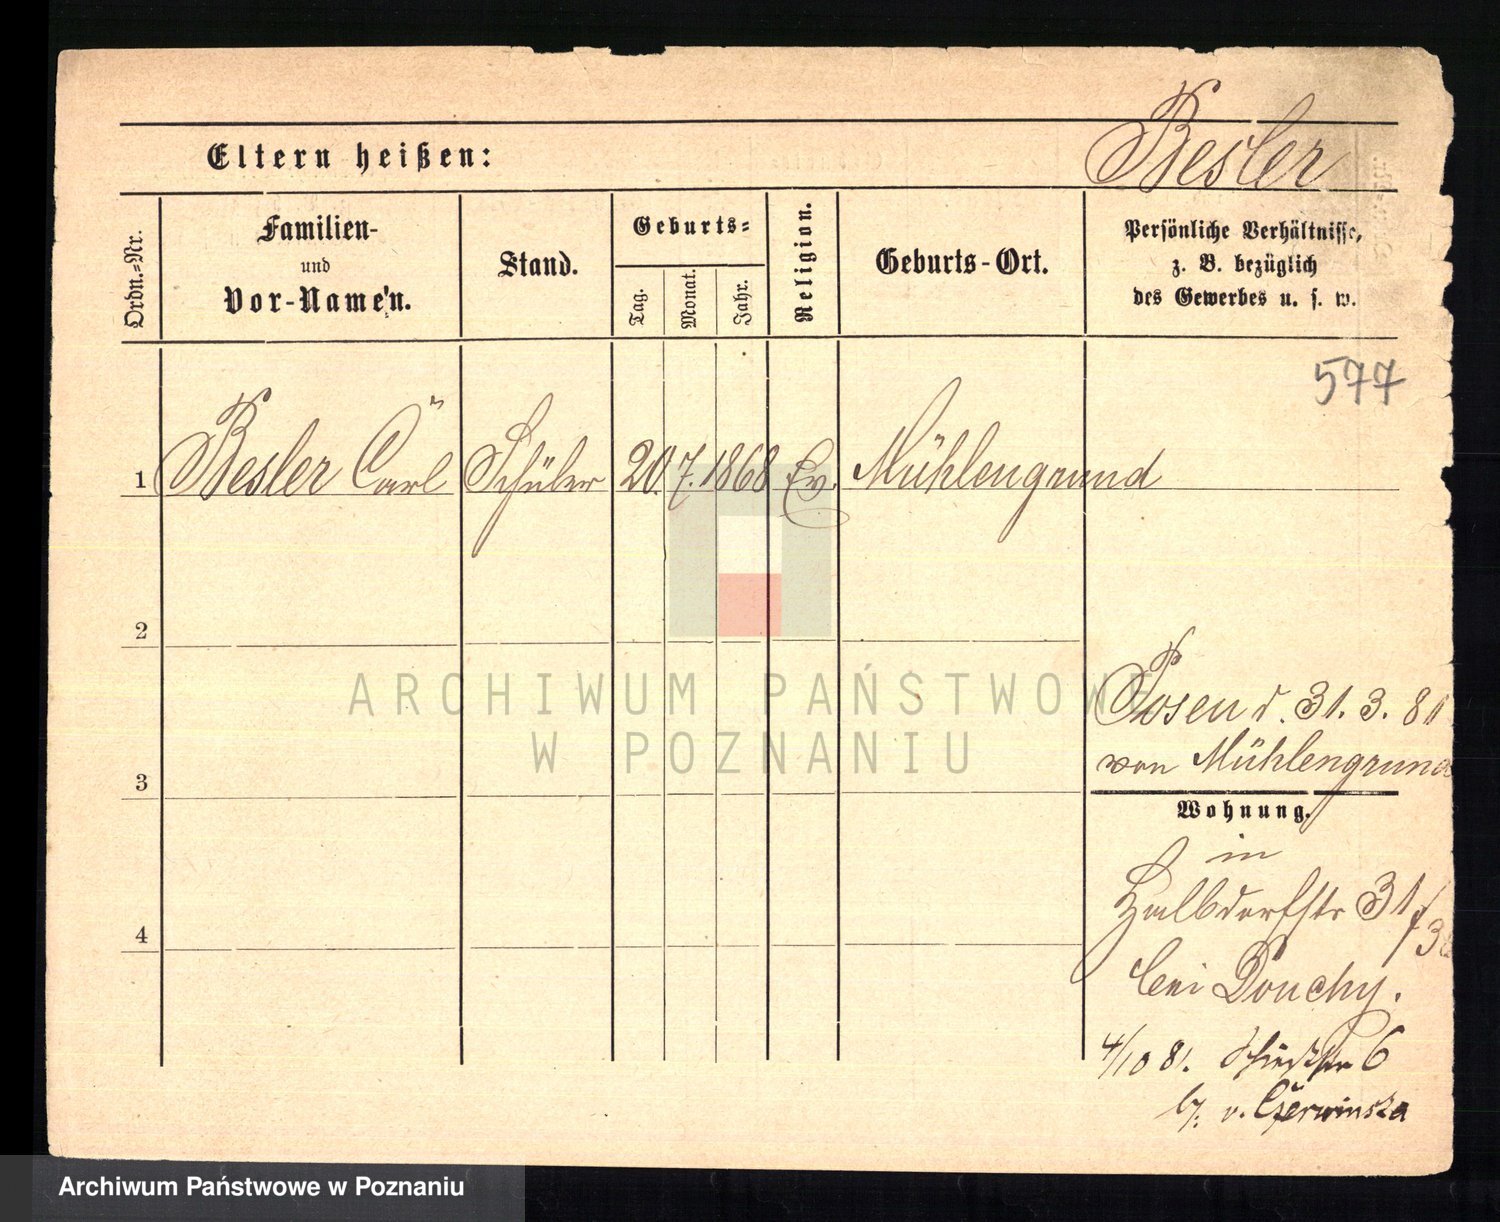 Besler
Eltern heißen:
Ordn.=Nr.
Familien-
und
Vor-Namen.
Stand.
Geburts=
Tag.
Monat.
Jahr.
Religion.
Geburts-Ort.
Persönliche Verhältnisse,
z. B. bezüglich
des Gewerbes u. s. w.
577
1 Besler Carl Schüler 20. 7. 1868 Ev. Mühlengrund
2
3
4
Posen d. 31. 3. 81
von Mühlengrund
Wohnung.
in
Halbdorfstr 31/3
bei Douchy.
4/10 81. 6
b/. v. Czerwinska
ARCHIWUM PAŃSTWOWE
W POZNANIU
Archiwum Państwowe w Poznaniu